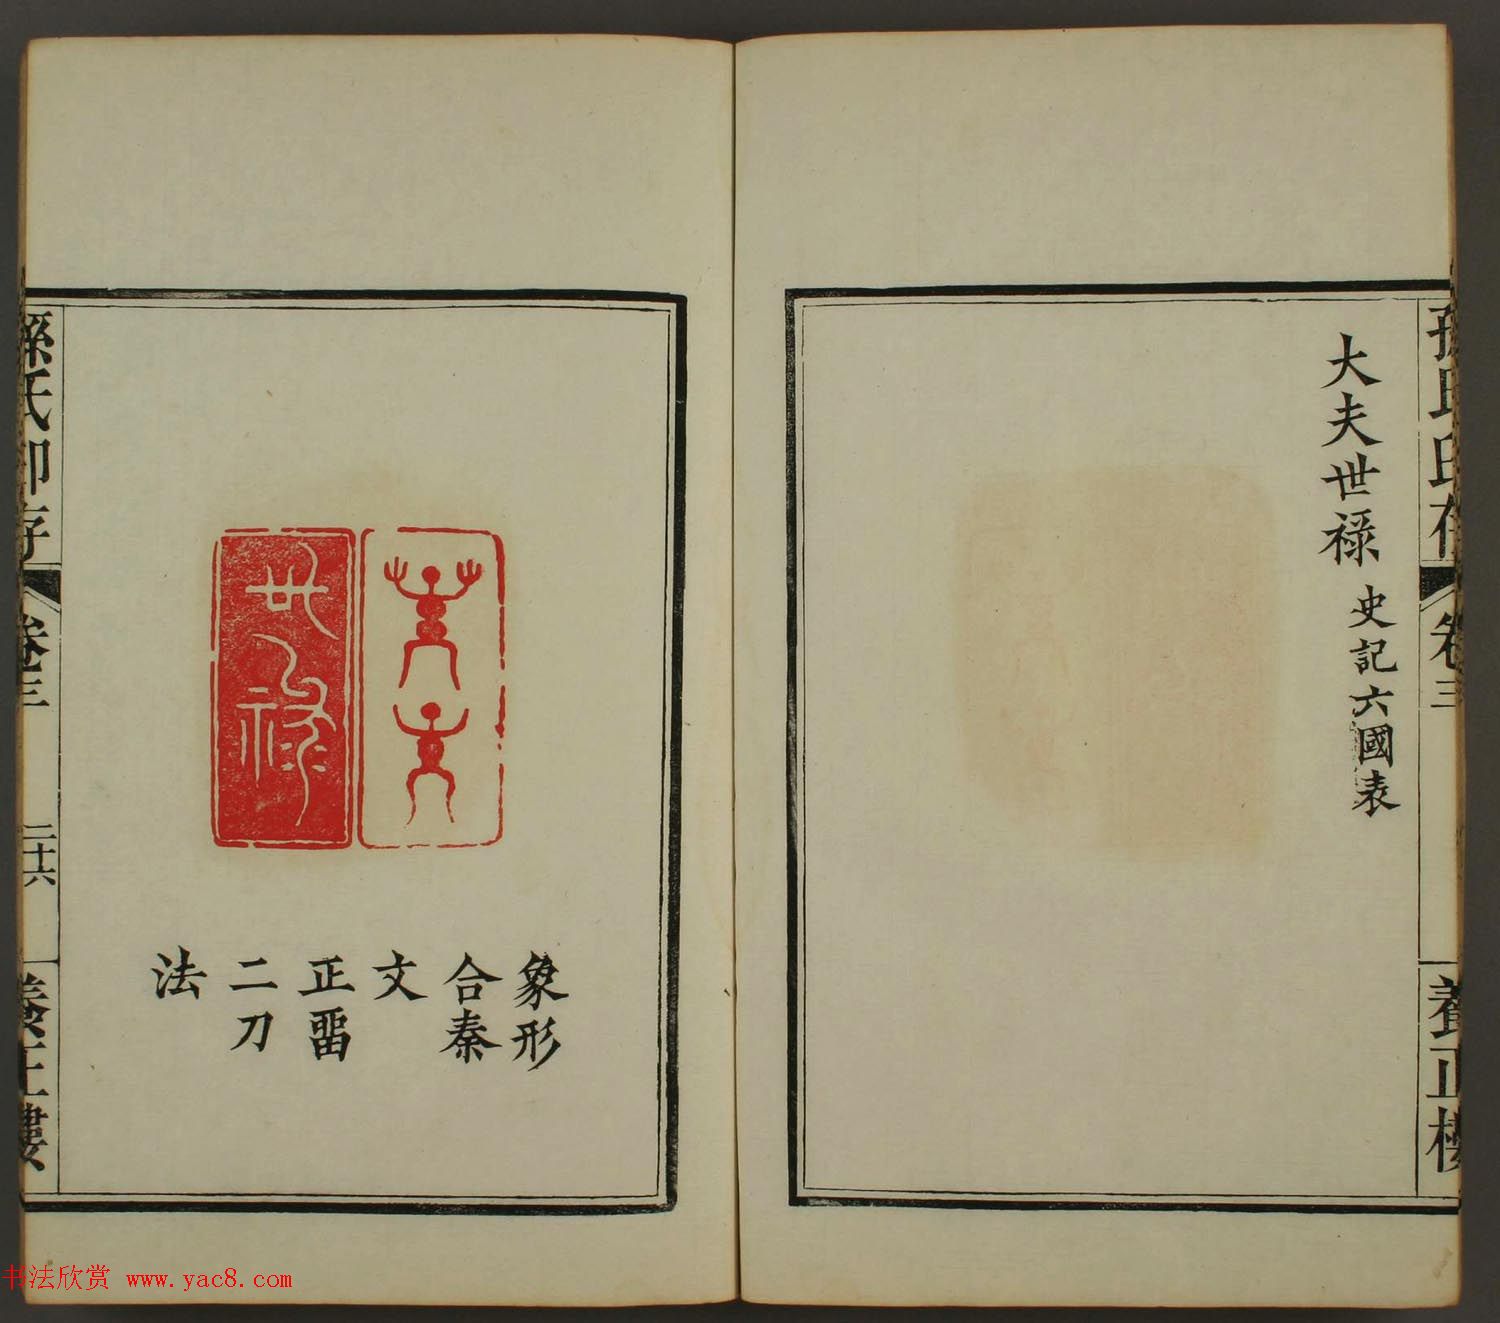 孫氏印存
卷三
養正樓
大夫世祿
史記六國表
大夫
世祿
象形
合秦
文
正畱
二刀
法
孫氏印存
卷三
二十六
養正樓
书法欣赏 www.yac8.com